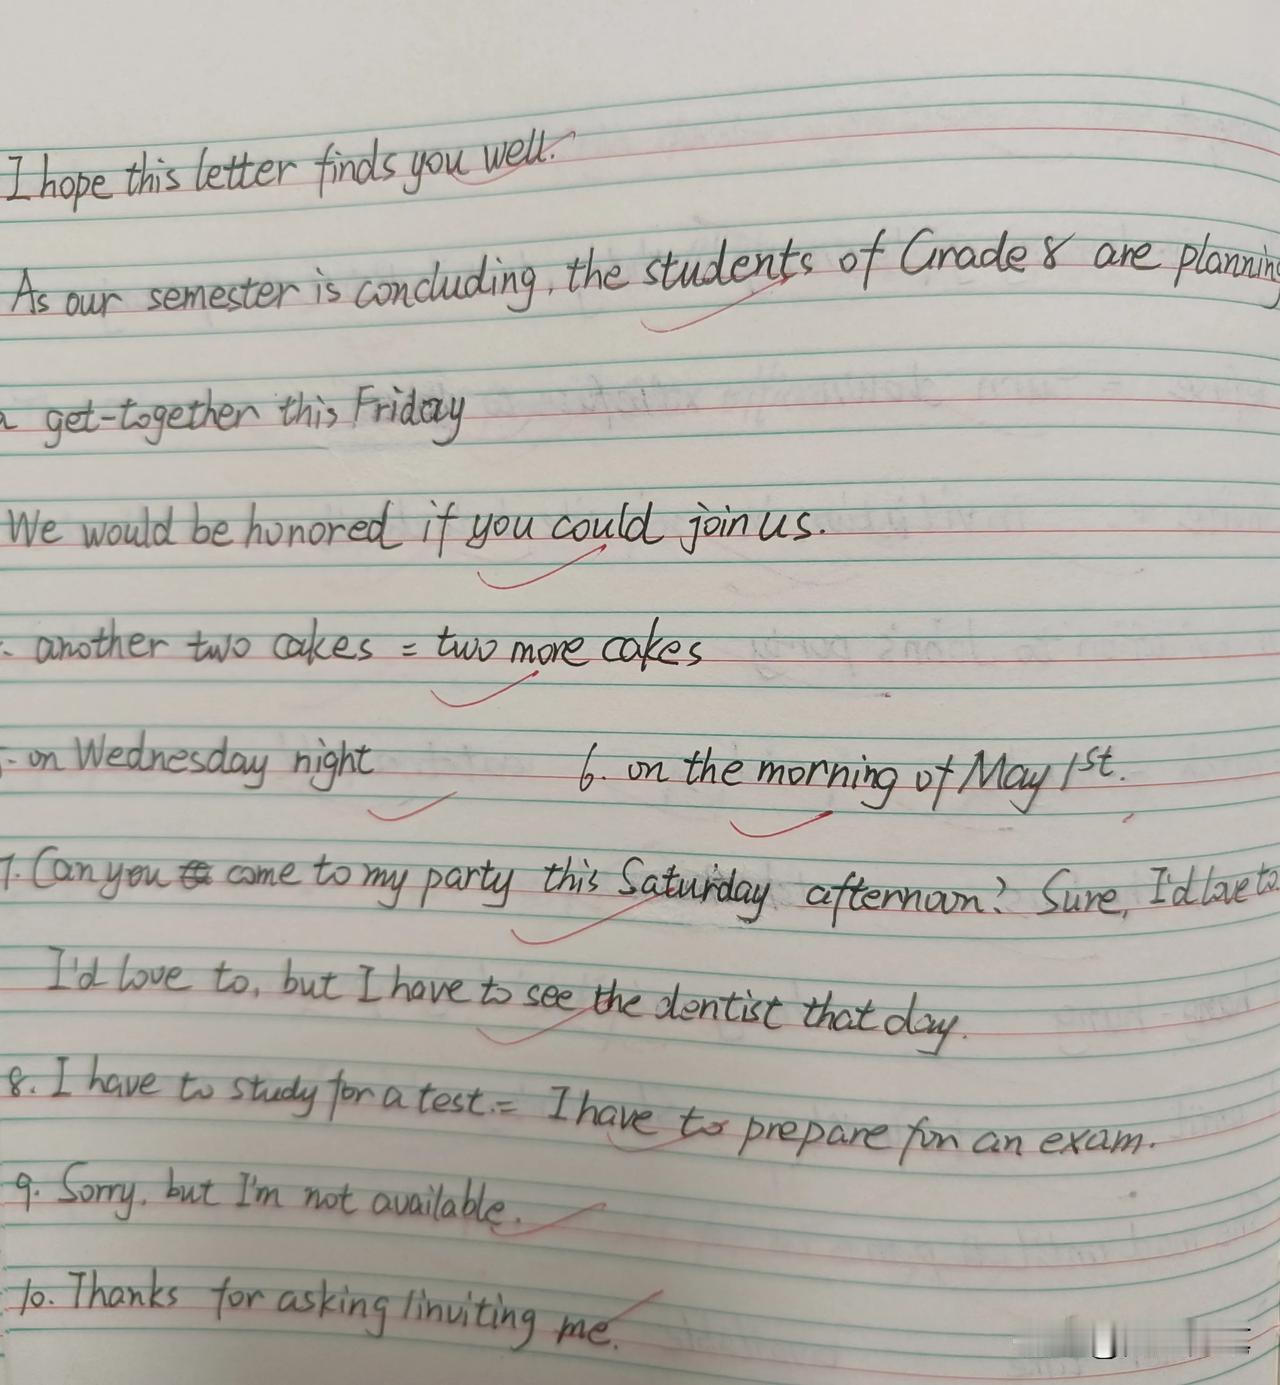 I hope this letter finds you well.
As our semester is concluding, the students of Grade 8 are planning
a get-together this Friday
We would be honored if you could join us.
. another two cakes = two more cakes
. on Wednesday night 6. on the morning of May 1st.
7. Can you come to my party this Saturday afternoon? Sure, I'd love to
I'd love to, but I have to see the dentist that day.
8. I have to study for a test. = I have to prepare for an exam.
9. Sorry, but I'm not available.
10. Thanks for asking / inviting me.